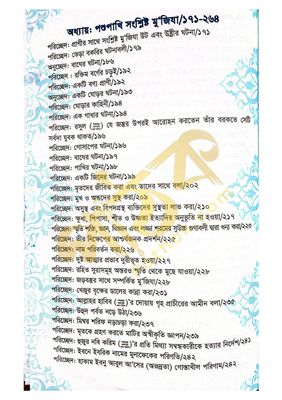 অধ্যায়: পশুপাখি সংশ্লিষ্ট মু'জিযা/১৭১-২৬৪
পরিচ্ছেদ: প্রাণীর সাথে সংশ্লিষ্ট মু'জিযা উট এবং উষ্ট্রীর ঘটনা/১৭১
পরিচ্ছেদ: ভেড়া বকরির ঘটনাবলী/১৭৯
অনুচ্ছেদ: বাঘের ঘটনা/১৮৬
পরিচ্ছেদ: রক্তিম বর্ণের চড়ুই/১৯২
পরিচ্ছেদ: একটি বণ্য প্রাণী/১৯২
অনুচ্ছেদ: একটি ঘোড়ার ঘটনা/১৯৩
পরিচ্ছেদ: ঘোড়ার কাহিনী/১৯৪
পরিচ্ছেদ: এক গাধার ঘটনা/১৯৪
পরিচ্ছেদ: রসুল (ﷺ) যে জন্তুর উপরই আরোহন করতেন তাঁর বরকতে সেটি
সর্বদা যুবক থাকত/১৯৬
পরিচ্ছেদ: গোসাপের ঘটনা/১৯৬
পরিচ্ছেদ: বাঘের ঘটনা/১৯৭
পরিচ্ছেদ: পাখির ঘটনা/১৯৮
পরিচ্ছেদ: একটি জিনের ঘটনা/১৯৯
পরিচ্ছেদ: মৃতদের জীবিত করা এবং তাদের সাথে বলা/২০২
পরিচ্ছেদ: মুখ ও অন্ধদের সুস্থ করা/২০৯
পরিচ্ছেদ: অসুস্থ এবং বিপদগ্রস্থ ব্যক্তিদের সুস্থতা লাভ করা/২১০
পরিচ্ছেদ: ক্ষুধা, পিপাসা, শীত ও উষ্ণতা ইত্যাদির অনুভূতি না হওয়া/২১৭
পরিচ্ছেদ: স্মৃতি শক্তি, জ্ঞান, বিজ্ঞান এবং লজ্জা শরমের সুউচ্চ গুণাবলী দ্বারা ধন্য করা/২২০
পরিচ্ছেদ: তীর নিক্ষেপের আশ্চর্যজনক প্রদর্শন/২২৫
পরিচ্ছেদ: নাম পরিবর্তন করা/২২৬
পরিচ্ছেদ: দুষ্ট আত্মার প্রভাব দূরীভূত হওয়া/২২৭
পরিচ্ছেদ: রহিত সুরাসমূহ অন্তরও স্মৃতি থেকে মুছে যাওয়া/২২৮
পরিচ্ছেদ: জড়বস্তুর সাথে সম্পর্কিত মু'জিযা/২২৮
পরিচ্ছেদ: খেজুর বৃক্ষের ডালের কান্না করা/২৩১
পরিচ্ছেদ: আল্লাহর হাবিব (ﷺ)'র দোয়ায় গৃহ প্রাচীরের আমীন বলা/২৩৫
পরিচ্ছেদ: উহুদ পর্বত নড়ে উঠা/২৩৬
পরিচ্ছেদ: মিম্বর শরিফ নড়াচড়া করা/২৩৭
পরিচ্ছেদ: মৃতকে গ্রহণ করতে মাটির অস্বীকৃতি জ্ঞাপন/২৩৯
পরিচ্ছেদ: হুজুর নবি করিম (ﷺ)'র প্রতি মিথ্যা সম্বন্ধকারীকে হত্যার নির্দেশ/২৪১
পরিচ্ছেদ: ইবনে ইবরিক নামের মুনাফেকের পরিণতি/২৪২
পরিচ্ছেদ: হাকাম ইবনু আবুল আ'সের (অজন্রতা) গোস্তাখীল পরিণাম/২৪২